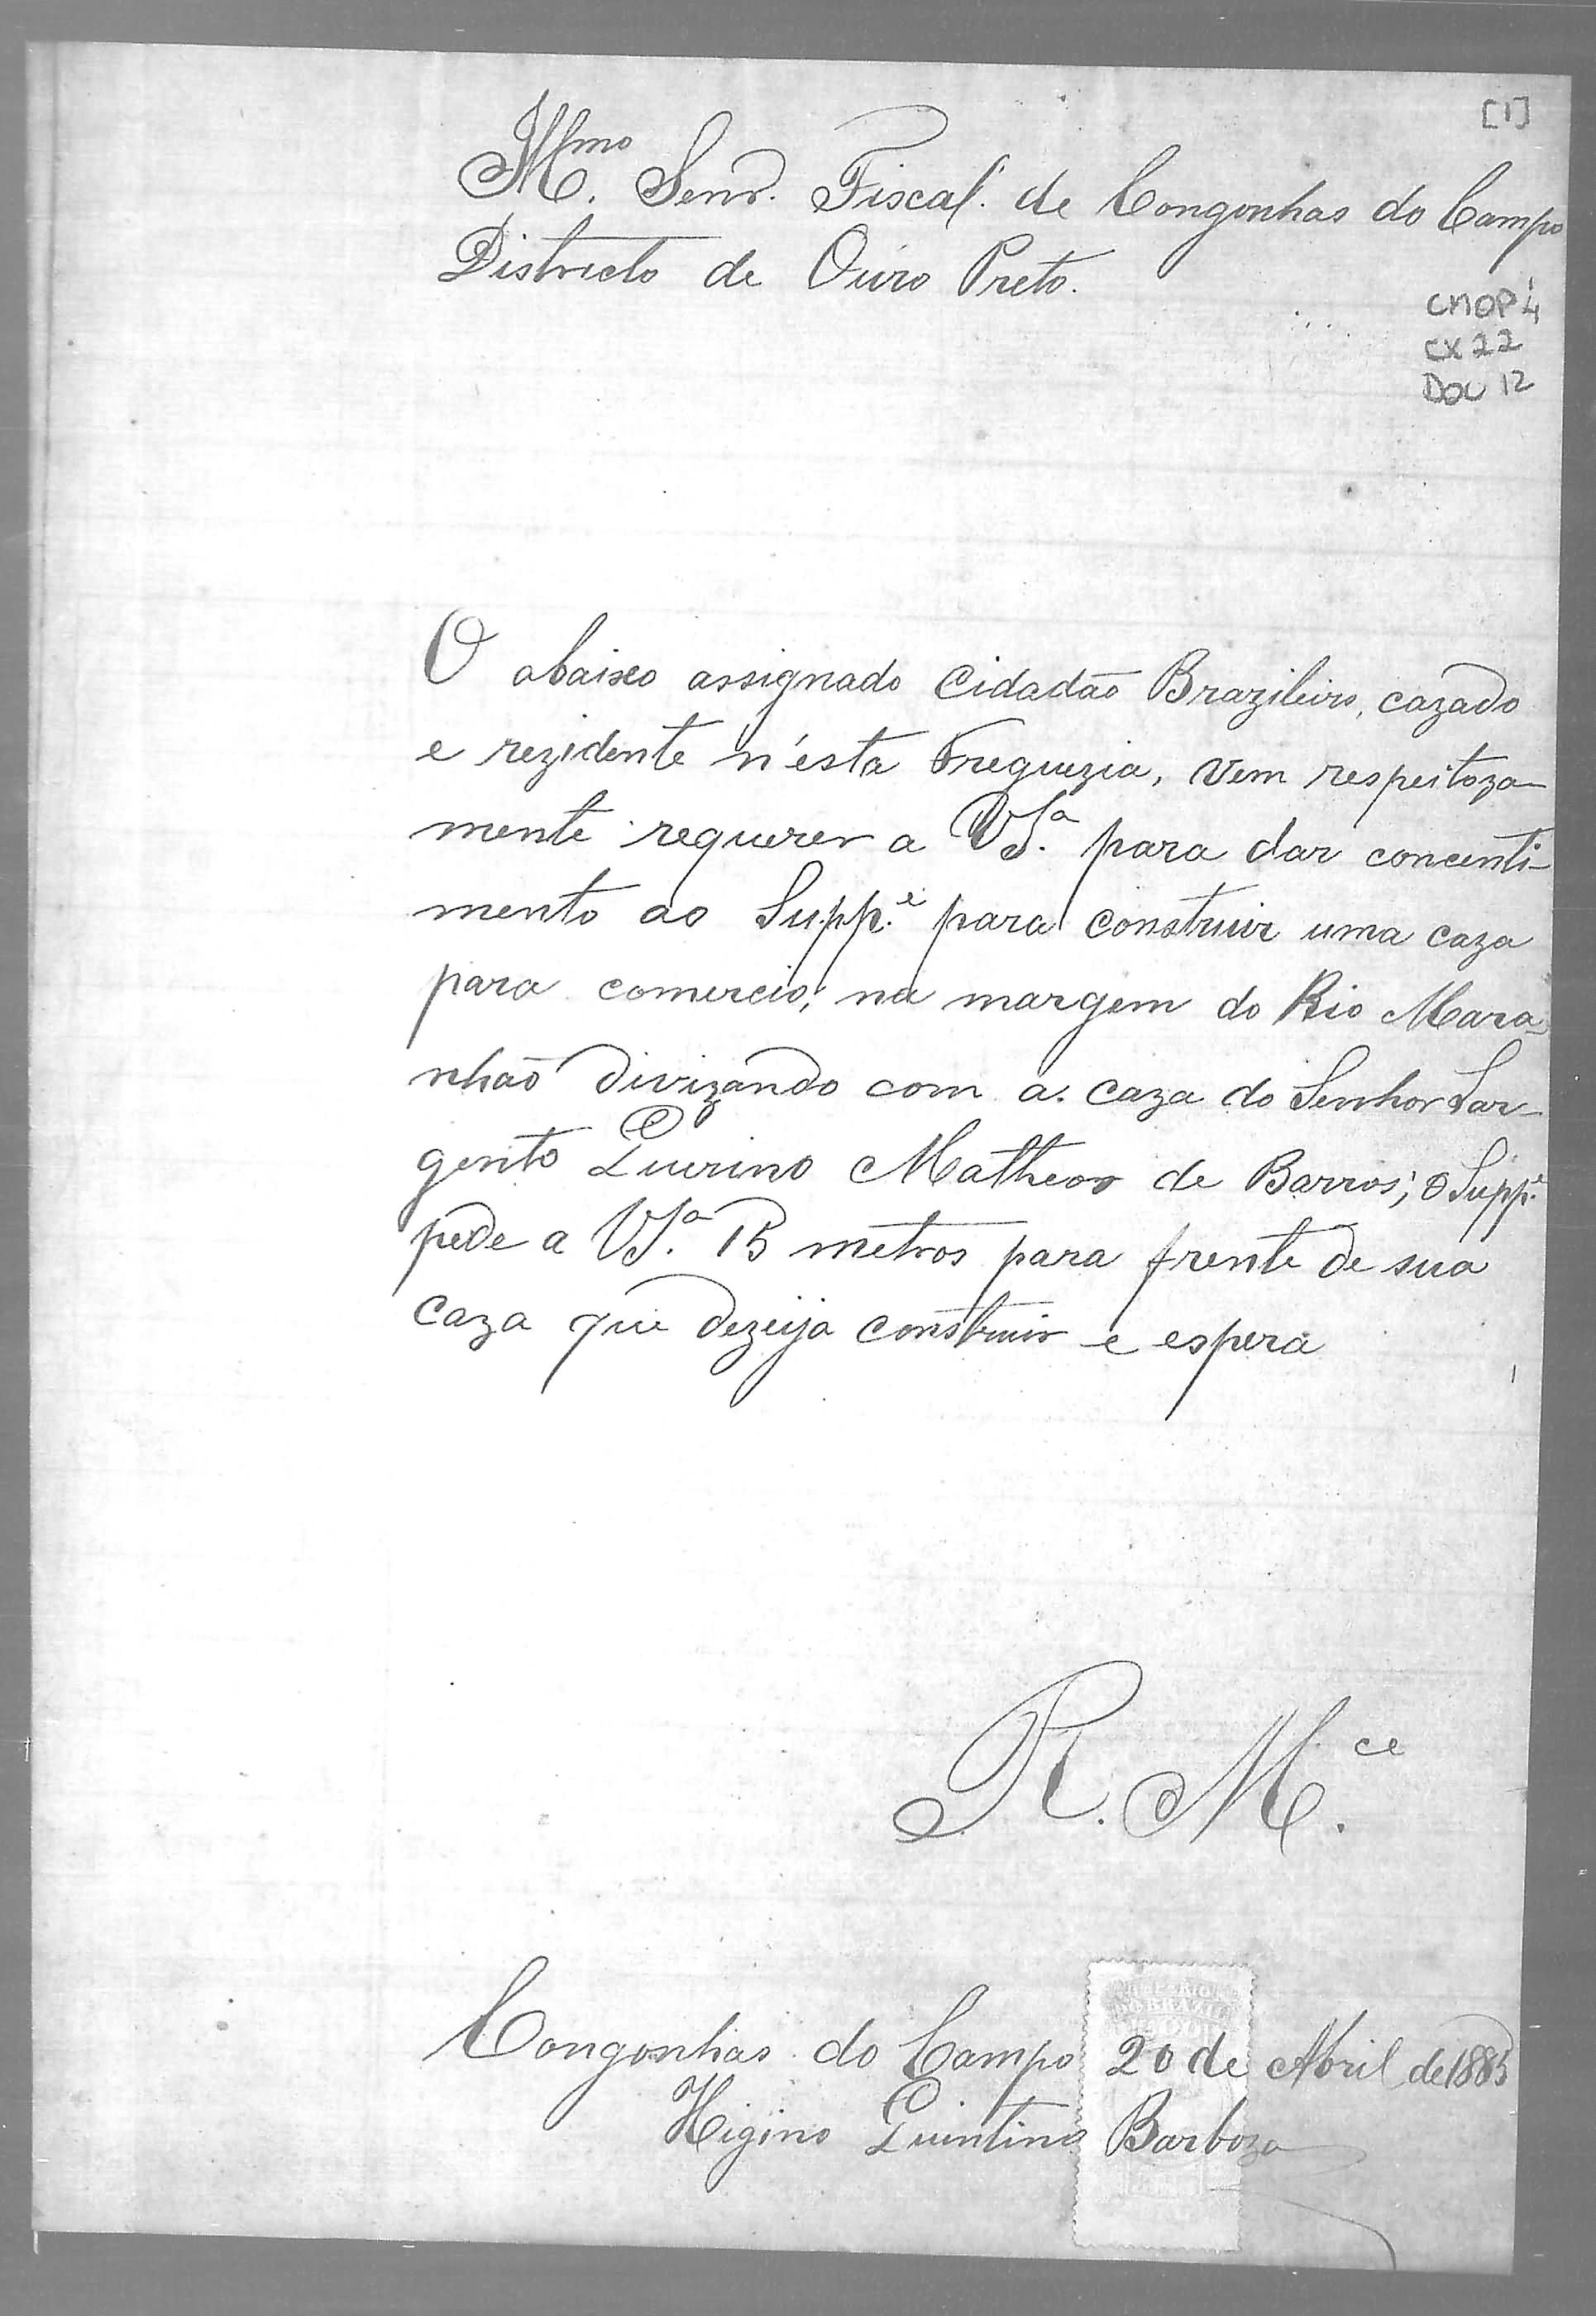 [1]
Illmo. Senr. Fiscal. de Congonhas do Campo
Districto de Ouro Preto.
CMOP 4
CX 22
DOC 12
O abaixo assignado Cidadão Brazileiro, cazado
e rezidente n'esta Freguezia, vem respeitoza-
mente requerer a VSa. para dar concenti-
mento ao Suppe. para construir uma caza
para comercio, na margem do Rio Mara-
nhão divizando com a caza do Senhor Sar-
gento Quirino Matheos de Barros; o Suppe.
pede a VSa. 15 metros para frente de sua
caza que dezeija construir e espera
R. Mce.
IMPERIO
DO BRAZIL
Congonhas do Campo 20 de Abril de 1885
Higino Quintino Barboza